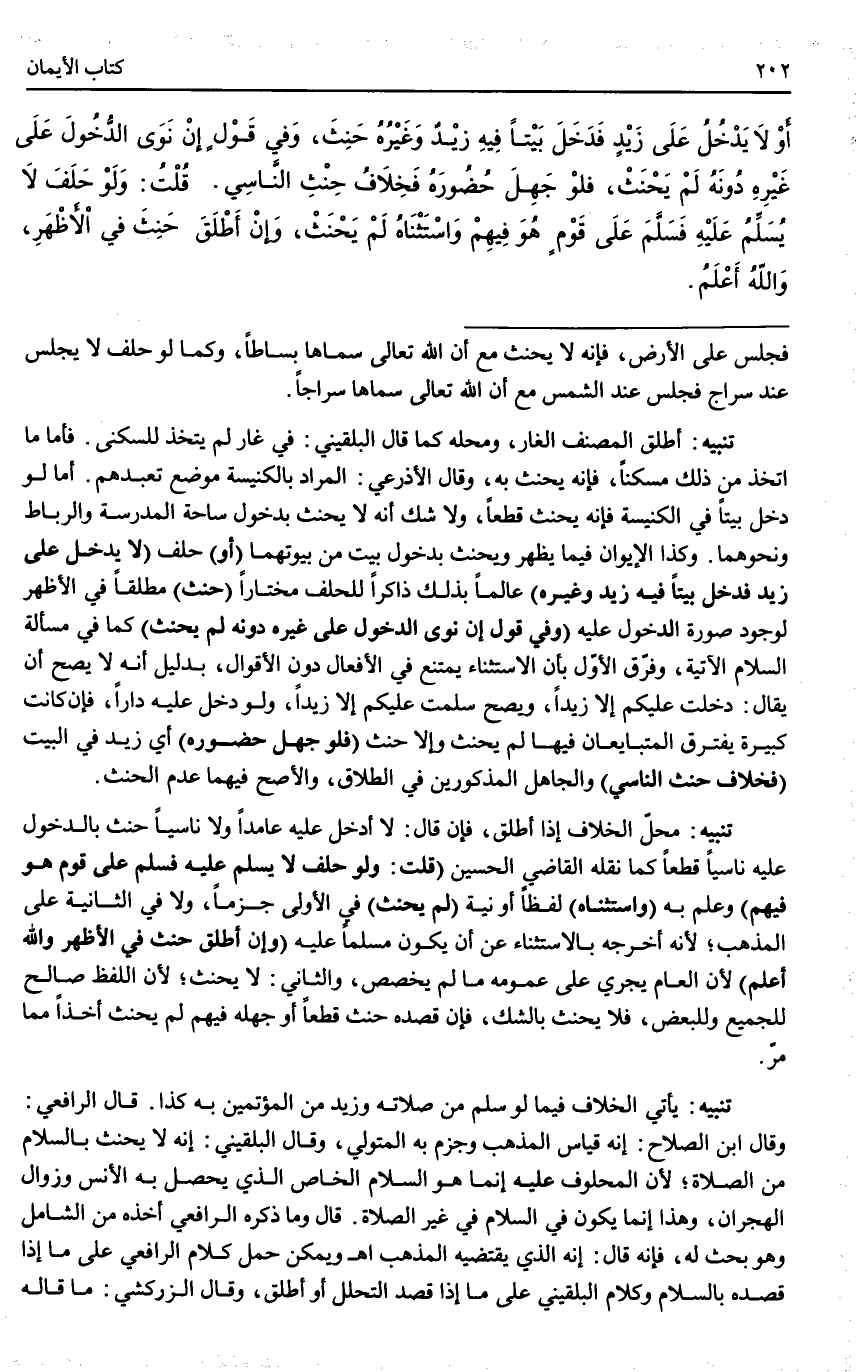 ٢٠٢ كتاب الأيمان
أَوْ لَا يَدْخُلُ عَلَى زَيْدٍ فَدَخَلَ بَيْتاً فِيهِ زَيْدٌ وَغَيْرُهُ حَنِثَ، وَفي قَوْلٍ إِنْ نَوَى الدُّخُولَ عَلَى
غَيْرِهِ دُونَهُ لَمْ يَحْنَثْ، فلوْ جَهِلَ حُضُورَهُ فَخِلَافُ حِنْثِ النَّاسِي. قُلْتُ: وَلَوْ حَلَفَ لَا
يُسَلِّمُ عَلَيْهِ فَسَلَّمَ عَلَى قَوْمٍ هُوَ فِيهِمْ وَاسْتَثْنَاهُ لَمْ يَحْنَثْ، وَإِنْ أَطْلَقَ حَنِثَ في الْأَظْهَرِ،
وَاللّهُ أَعْلَمُ.
فجلس على الأرض، فإنه لا يحنث مع أن الله تعالى سماها بساطاً، وكما لو حلف لا يجلس
عند سراج فجلس عند الشمس مع أن الله تعالى سماها سراجاً.
تنبيه: أطلق المصنف الغار، ومحله كما قال البلقيني: في غار لم يتخذ للسكنى. فأما ما
اتخذ من ذلك مسكناً، فإنه يحنث به، وقال الأذرعي: المراد بالكنيسة موضع تعبدهم. أما لو
دخل بيتاً في الكنيسة فإنه يحنث قطعاً، ولا شك أنه لا يحنث بدخول ساحة المدرسة والرباط
ونحوهما. وكذا الإيوان فيما يظهر ويحنث بدخول بيت من بيوتهما (أو) حلف (لا يدخل على
زيد فدخل بيتاً فيه زيد وغيره) عالماً بذلك ذاكراً للحلف مختاراً (حنث) مطلقاً في الأظهر
لوجود صورة الدخول عليه (وفي قول إن نوى الدخول على غيره دونه لم يحنث) كما في مسألة
السلام الآتية، وفرّق الأوّل بأن الاستثناء يمتنع في الأفعال دون الأقوال، بدليل أنه لا يصح أن
يقال: دخلت عليكم إلا زيداً، ويصح سلمت عليكم إلا زيداً، ولو دخل عليه داراً، فإن كانت
كبيرة يفترق المتبايعان فيها لم يحنث وإلا حنث (فلو جهل حضوره) أي زيد في البيت
(فخلاف حنث الناسي) والجاهل المذكورين في الطلاق، والأصح فيهما عدم الحنث.
تنبيه: محلّ الخلاف إذا أطلق، فإن قال: لا أدخل عليه عامداً ولا ناسياً حنث بالدخول
عليه ناسياً قطعاً كما نقله القاضي الحسين (قلت: ولو حلف لا يسلم عليه فسلم على قوم هو
فيهم) وعلم به (واستثناه) لفظاً أو نية (لم يحنث) في الأولى جزماً، ولا في الثانية على
المذهب؛ لأنه أخرجه بالاستثناء عن أن يكون مسلماً عليه (وإن أطلق حنث في الأظهر والله
أعلم) لأن العام يجري على عمومه ما لم يخصص، والثاني: لا يحنث؛ لأن اللفظ صالح
للجميع وللبعض، فلا يحنث بالشك، فإن قصده حنث قطعاً أو جهله فيهم لم يحنث أخذاً مما
مرّ.
تنبيه: يأتي الخلاف فيما لو سلم من صلاته وزيد من المؤتمين به كذا. قال الرافعي:
وقال ابن الصلاح: إنه قياس المذهب وجزم به المتولي، وقال البلقيني: إنه لا يحنث بالسلام
من الصلاة؛ لأن المحلوف عليه إنما هو السلام الخاص الذي يحصل به الأنس وزوال
الهجران، وهذا إنما يكون في السلام في غير الصلاة. قال وما ذكره الرافعي أخذه من الشامل
وهو بحث له، فإنه قال: إنه الذي يقتضيه المذهب اهـ ويمكن حمل كلام الرافعي على ما إذا
قصده بالسلام وكلام البلقيني على ما إذا قصد التحلل أو أطلق، وقال الزركشي: ما قاله